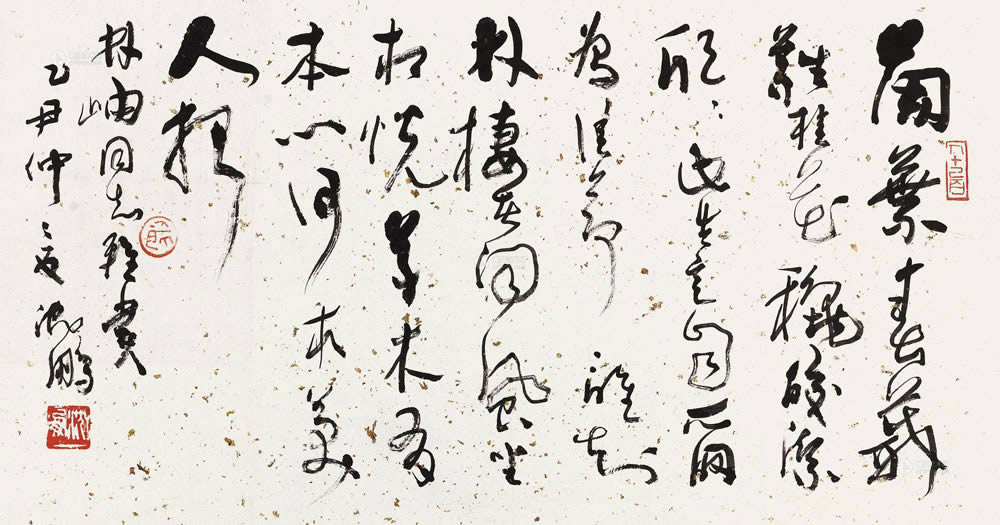 蘭葉春葳
蕤桂花穐皎潔
欣欣此生意自爾
為佳節誰知
林棲者聞風坐
相悦草木有
本心何求美
人折
林岫同志雅賞
乙丑仲夏沈鵬